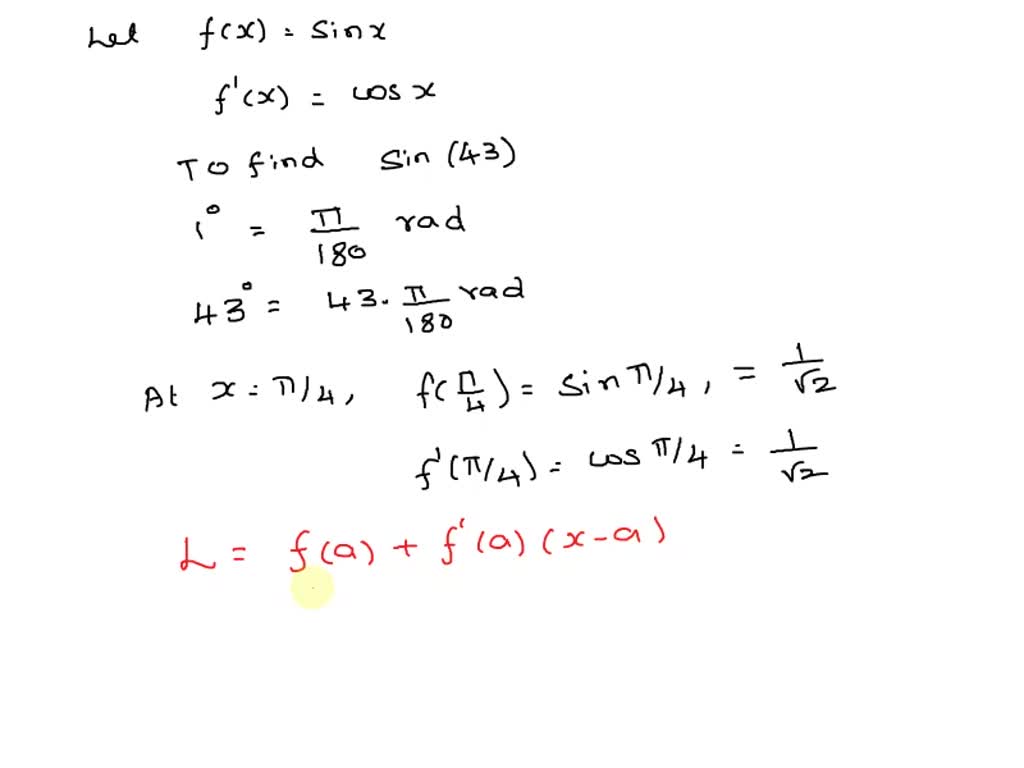 Let f(x) = sinx
f'(x) = cos x
To find sin (43)
1° = π/180 rad
43° = 43. π/180 rad
At x = π/4, f(π/4) = sin π/4, = 1/√2
f'(π/4) = cos π/4 = 1/√2
L = f(a) + f'(a) (x-a)